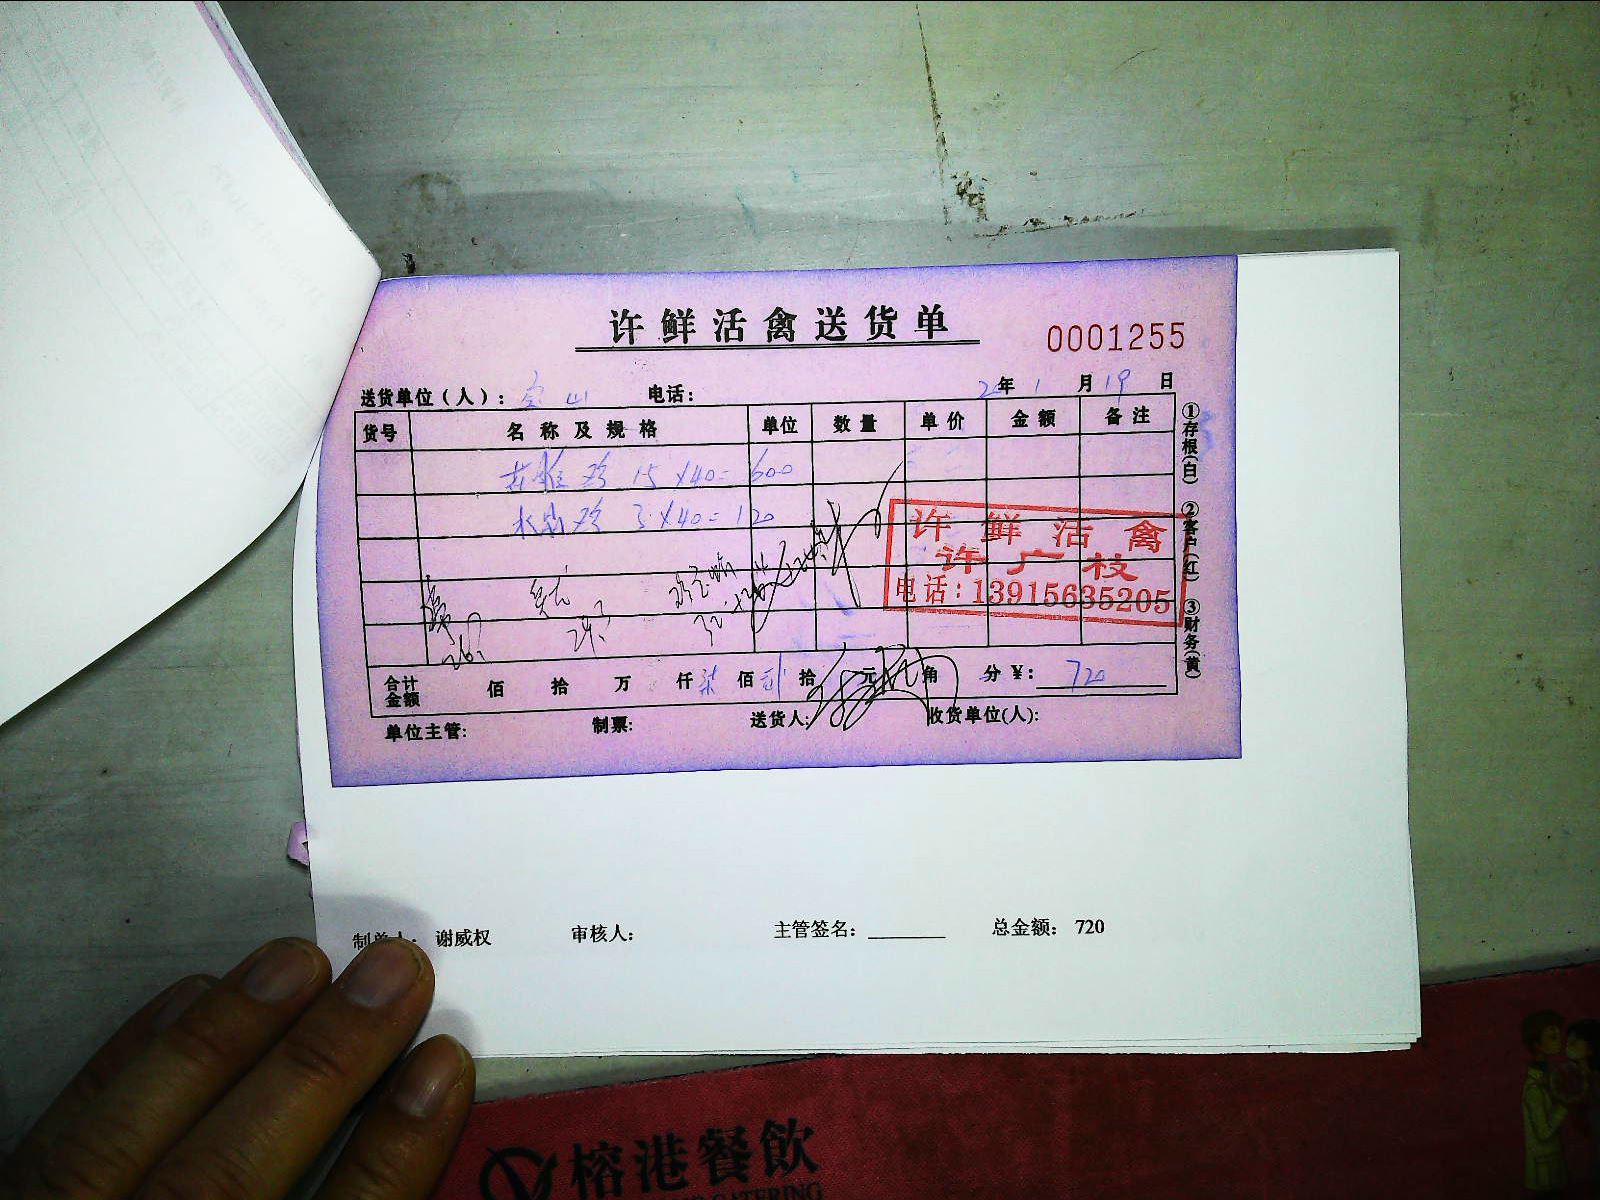 许鲜活禽送货单
0001255
送货单位(人): 宝山 电话: 2 年 1 月 19 日
货号 名称及规格 单位 数量 单价 金额 备注
鸡 15×40=600
鸡 3×40=120
许鲜活禽
许广枝
电话:13915635205
①存根(白) ②客户(红) ③财务(黄)
合计金额 佰 拾 万 仟 柒 佰 贰 拾 元 角 分 ¥: 720
单位主管: 制票: 送货人: 收货单位(人):
制单人: 谢威权 审核人: 主管签名: 总金额: 720
榕港餐飲
CATERING